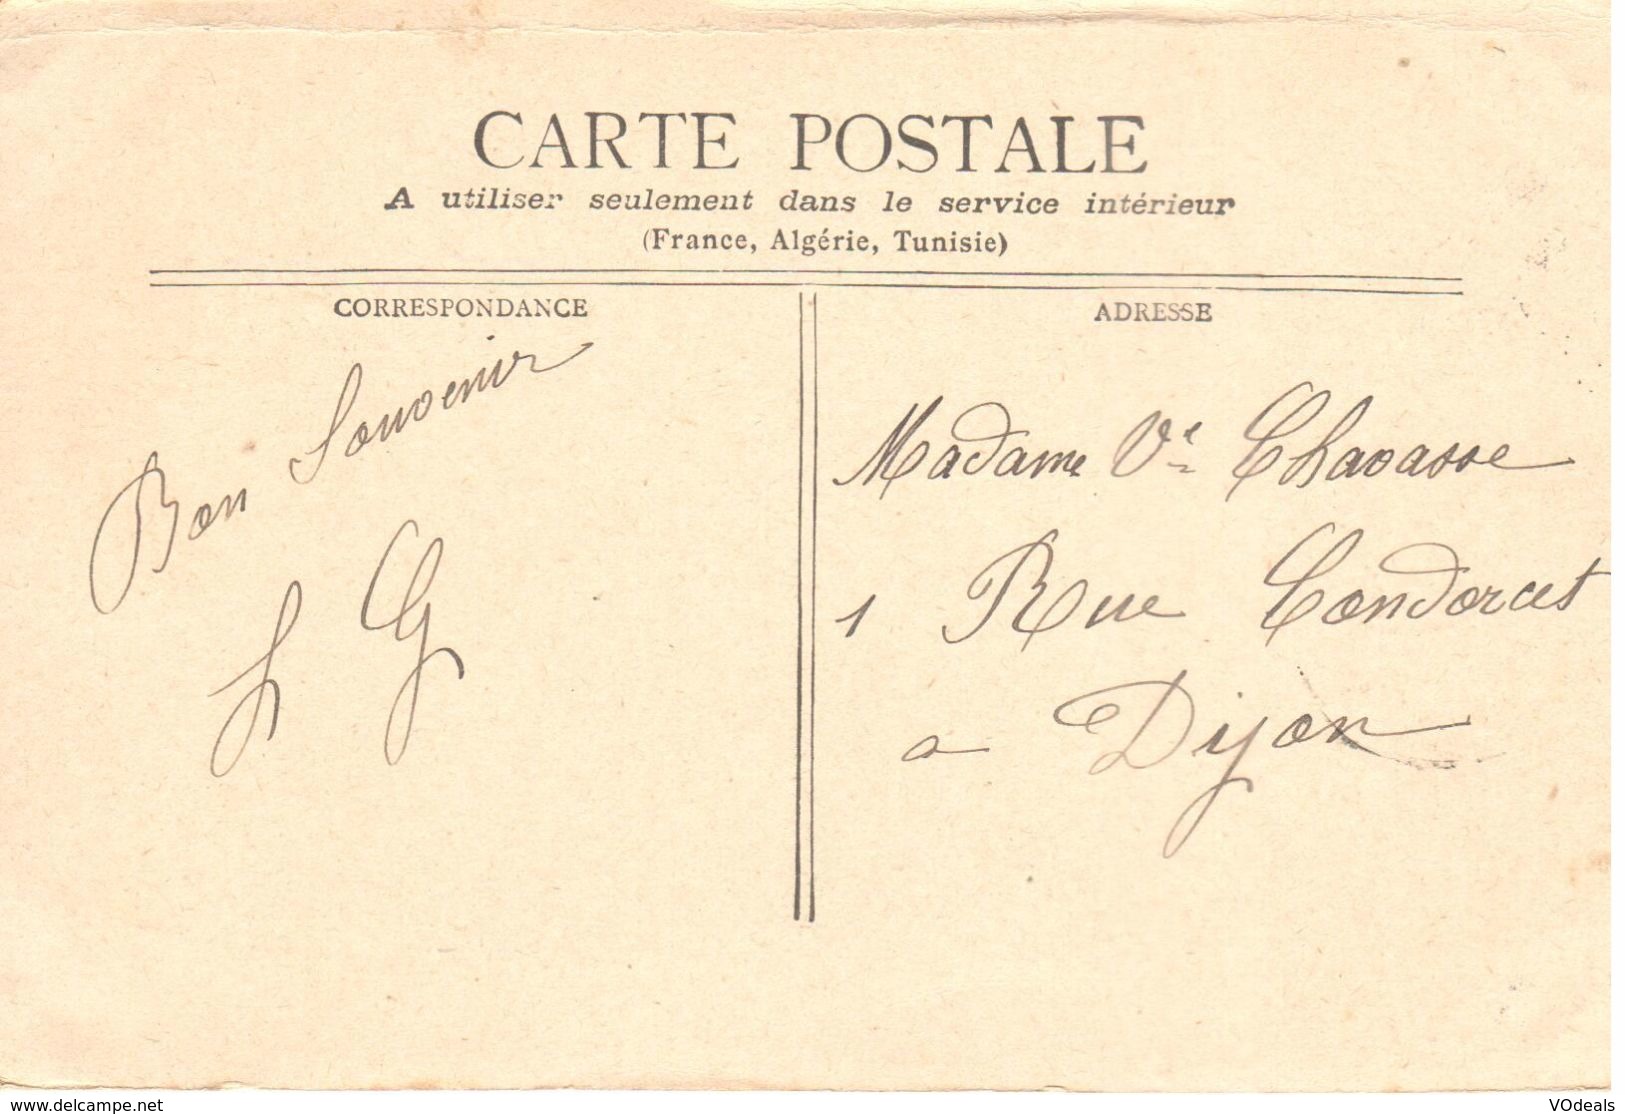 CARTE POSTALE
A utiliser seulement dans le service intérieur
(France, Algérie, Tunisie)
CORRESPONDANCE
Bon Souvenir
L G
ADRESSE
Madame Ve Chavasse
1 Rue Condorcet
a Dijon
www.delcampe.net
VOdeals